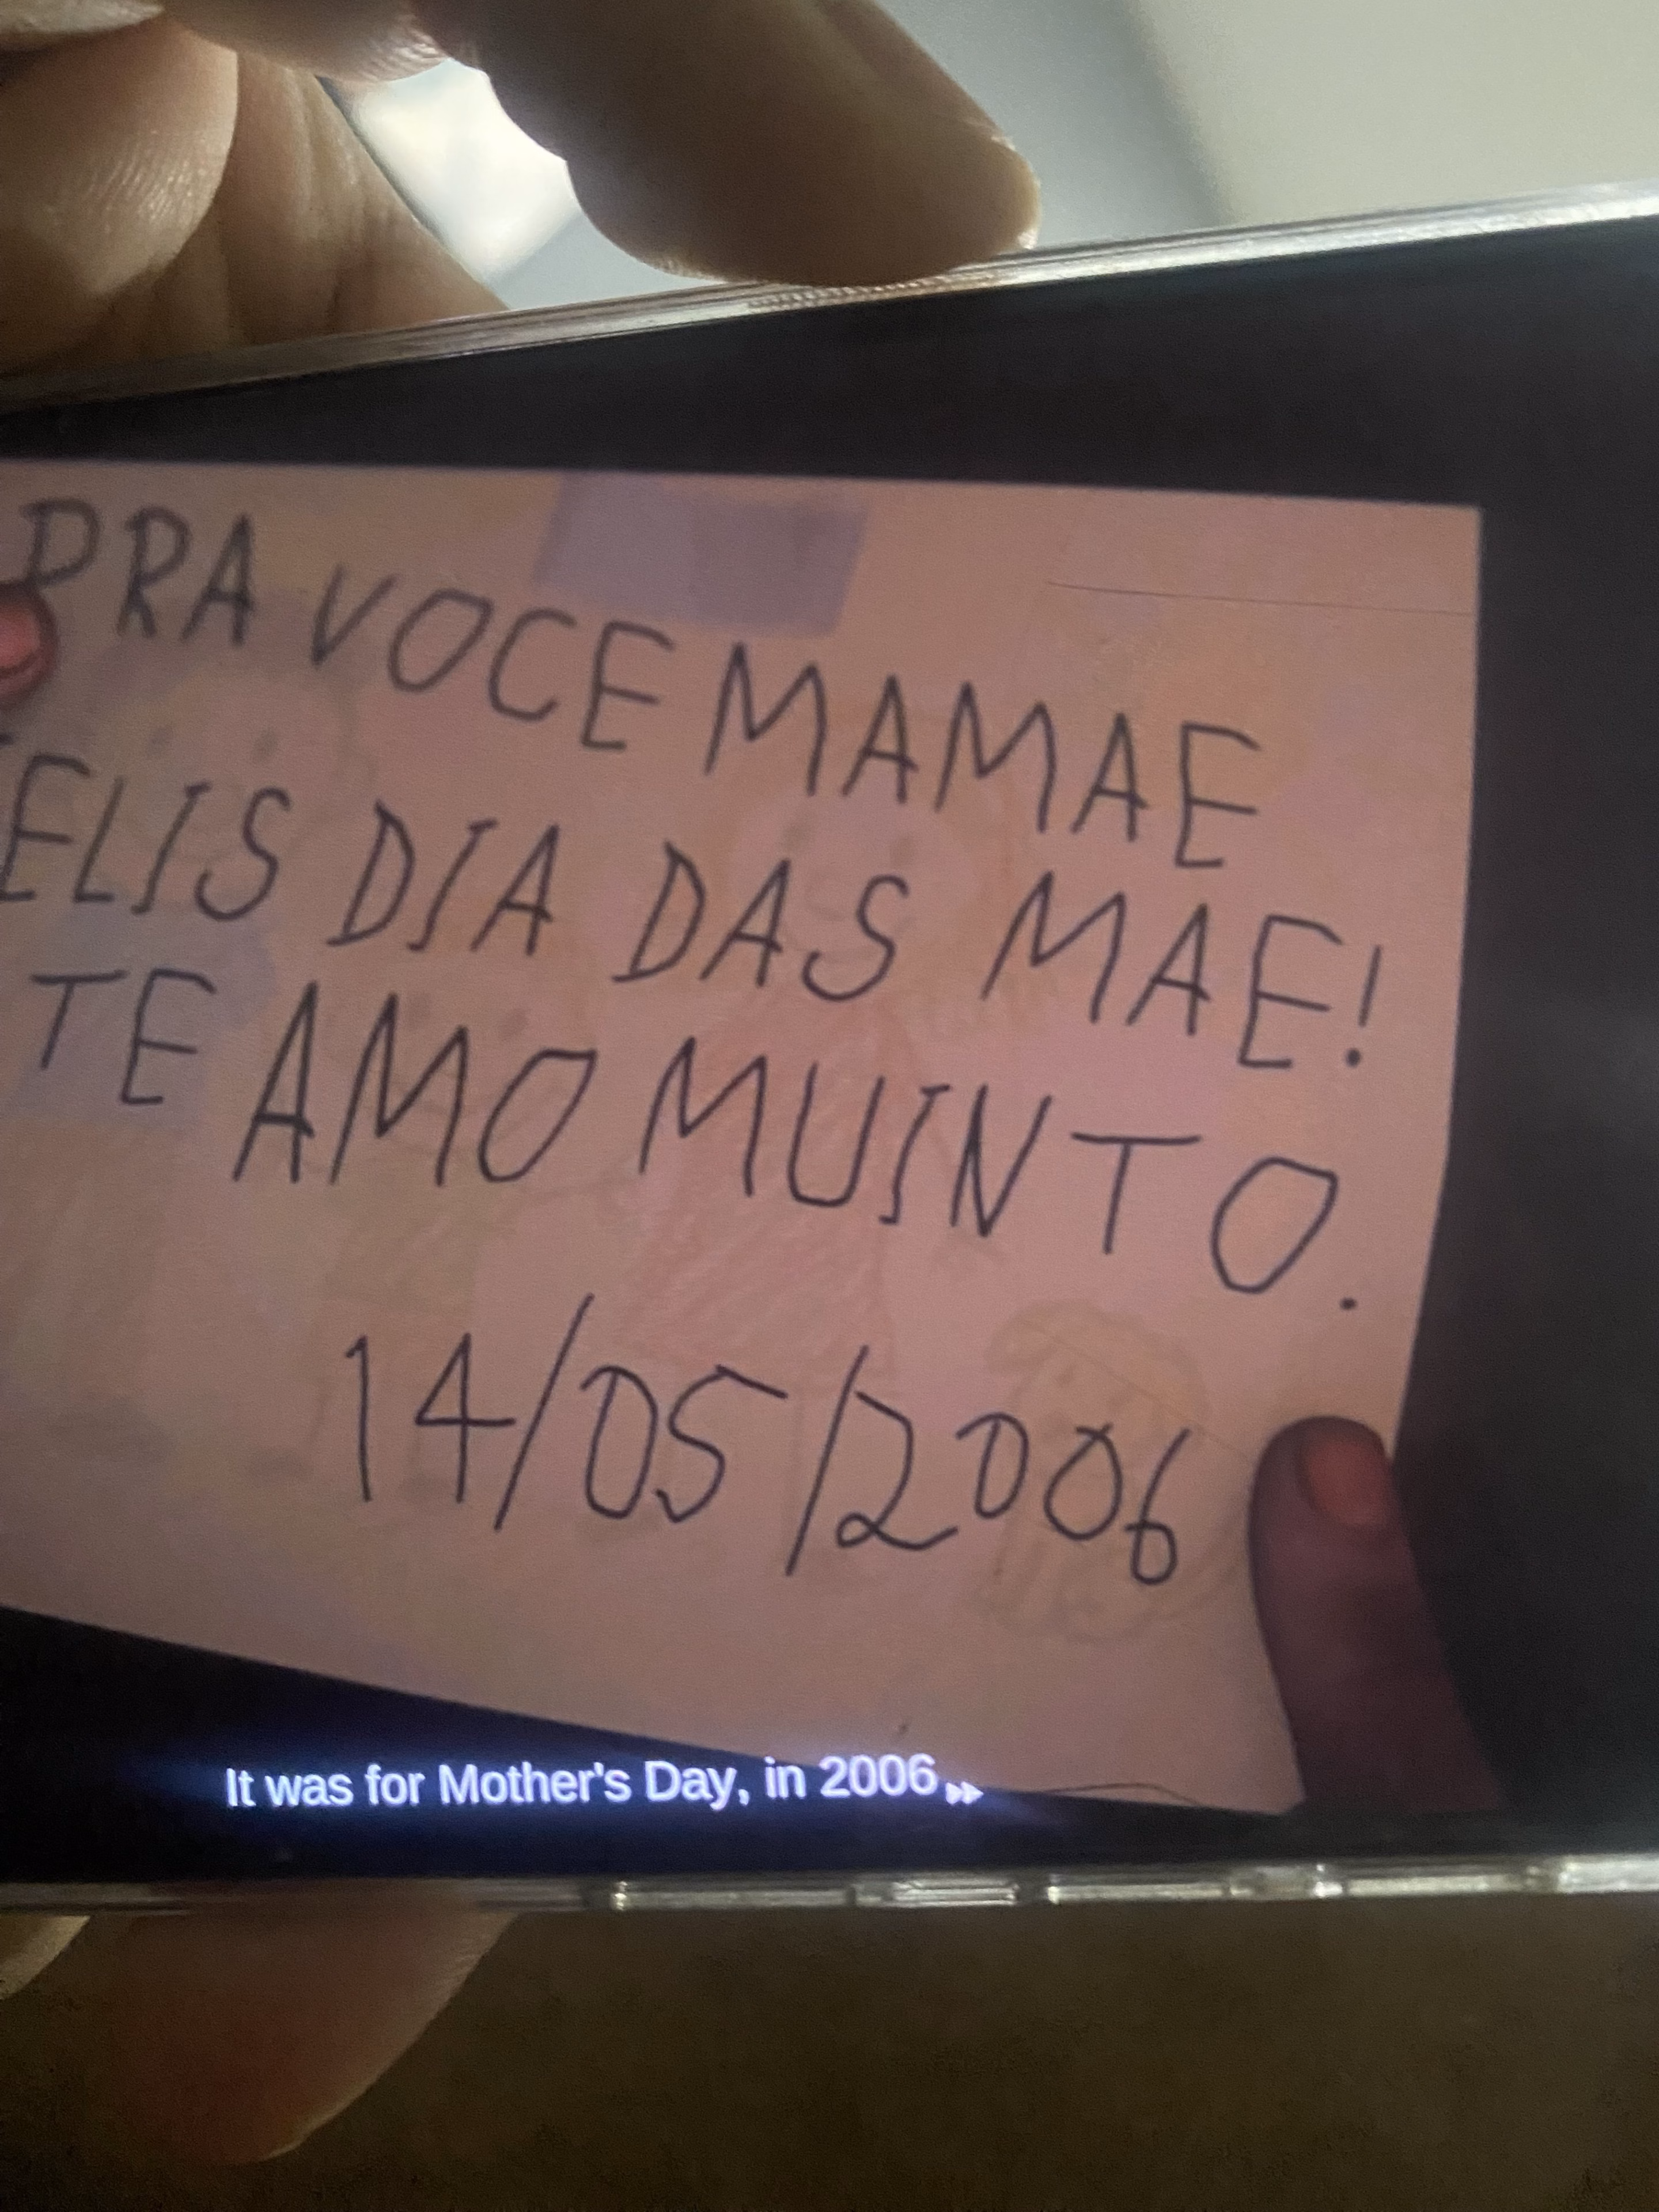 PRA VOCE MAMAE
ELIS DIA DAS MAE!
TE AMO MUINTO.
14/05/2006
It was for Mother's Day, in 2006